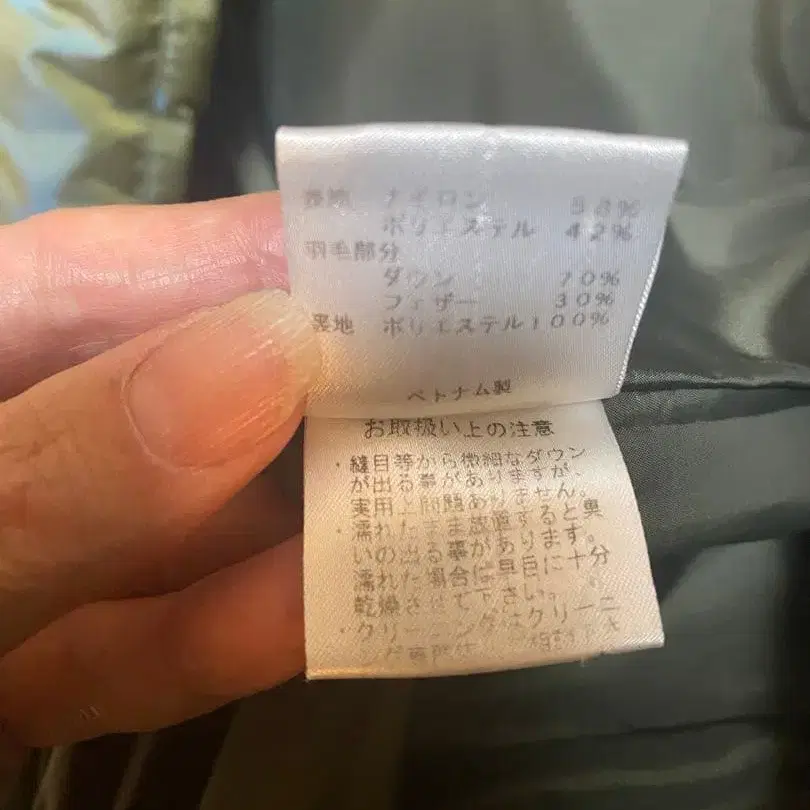 表地 ナイロン 58%
ポリエステル 42%
羽毛部分
ダウン 70%
フェザー 30%
裏地 ポリエステル100%
ベトナム製
お取扱い上の注意
・縫目等から微細なダウン
が出る事がありますが、
実用上問題ありません。
・濡れたまま放置すると臭
いの出る事があります。
濡れた場合は早目に十分
乾燥させて下さい。
・クリーニングはクリーニ
ング専門